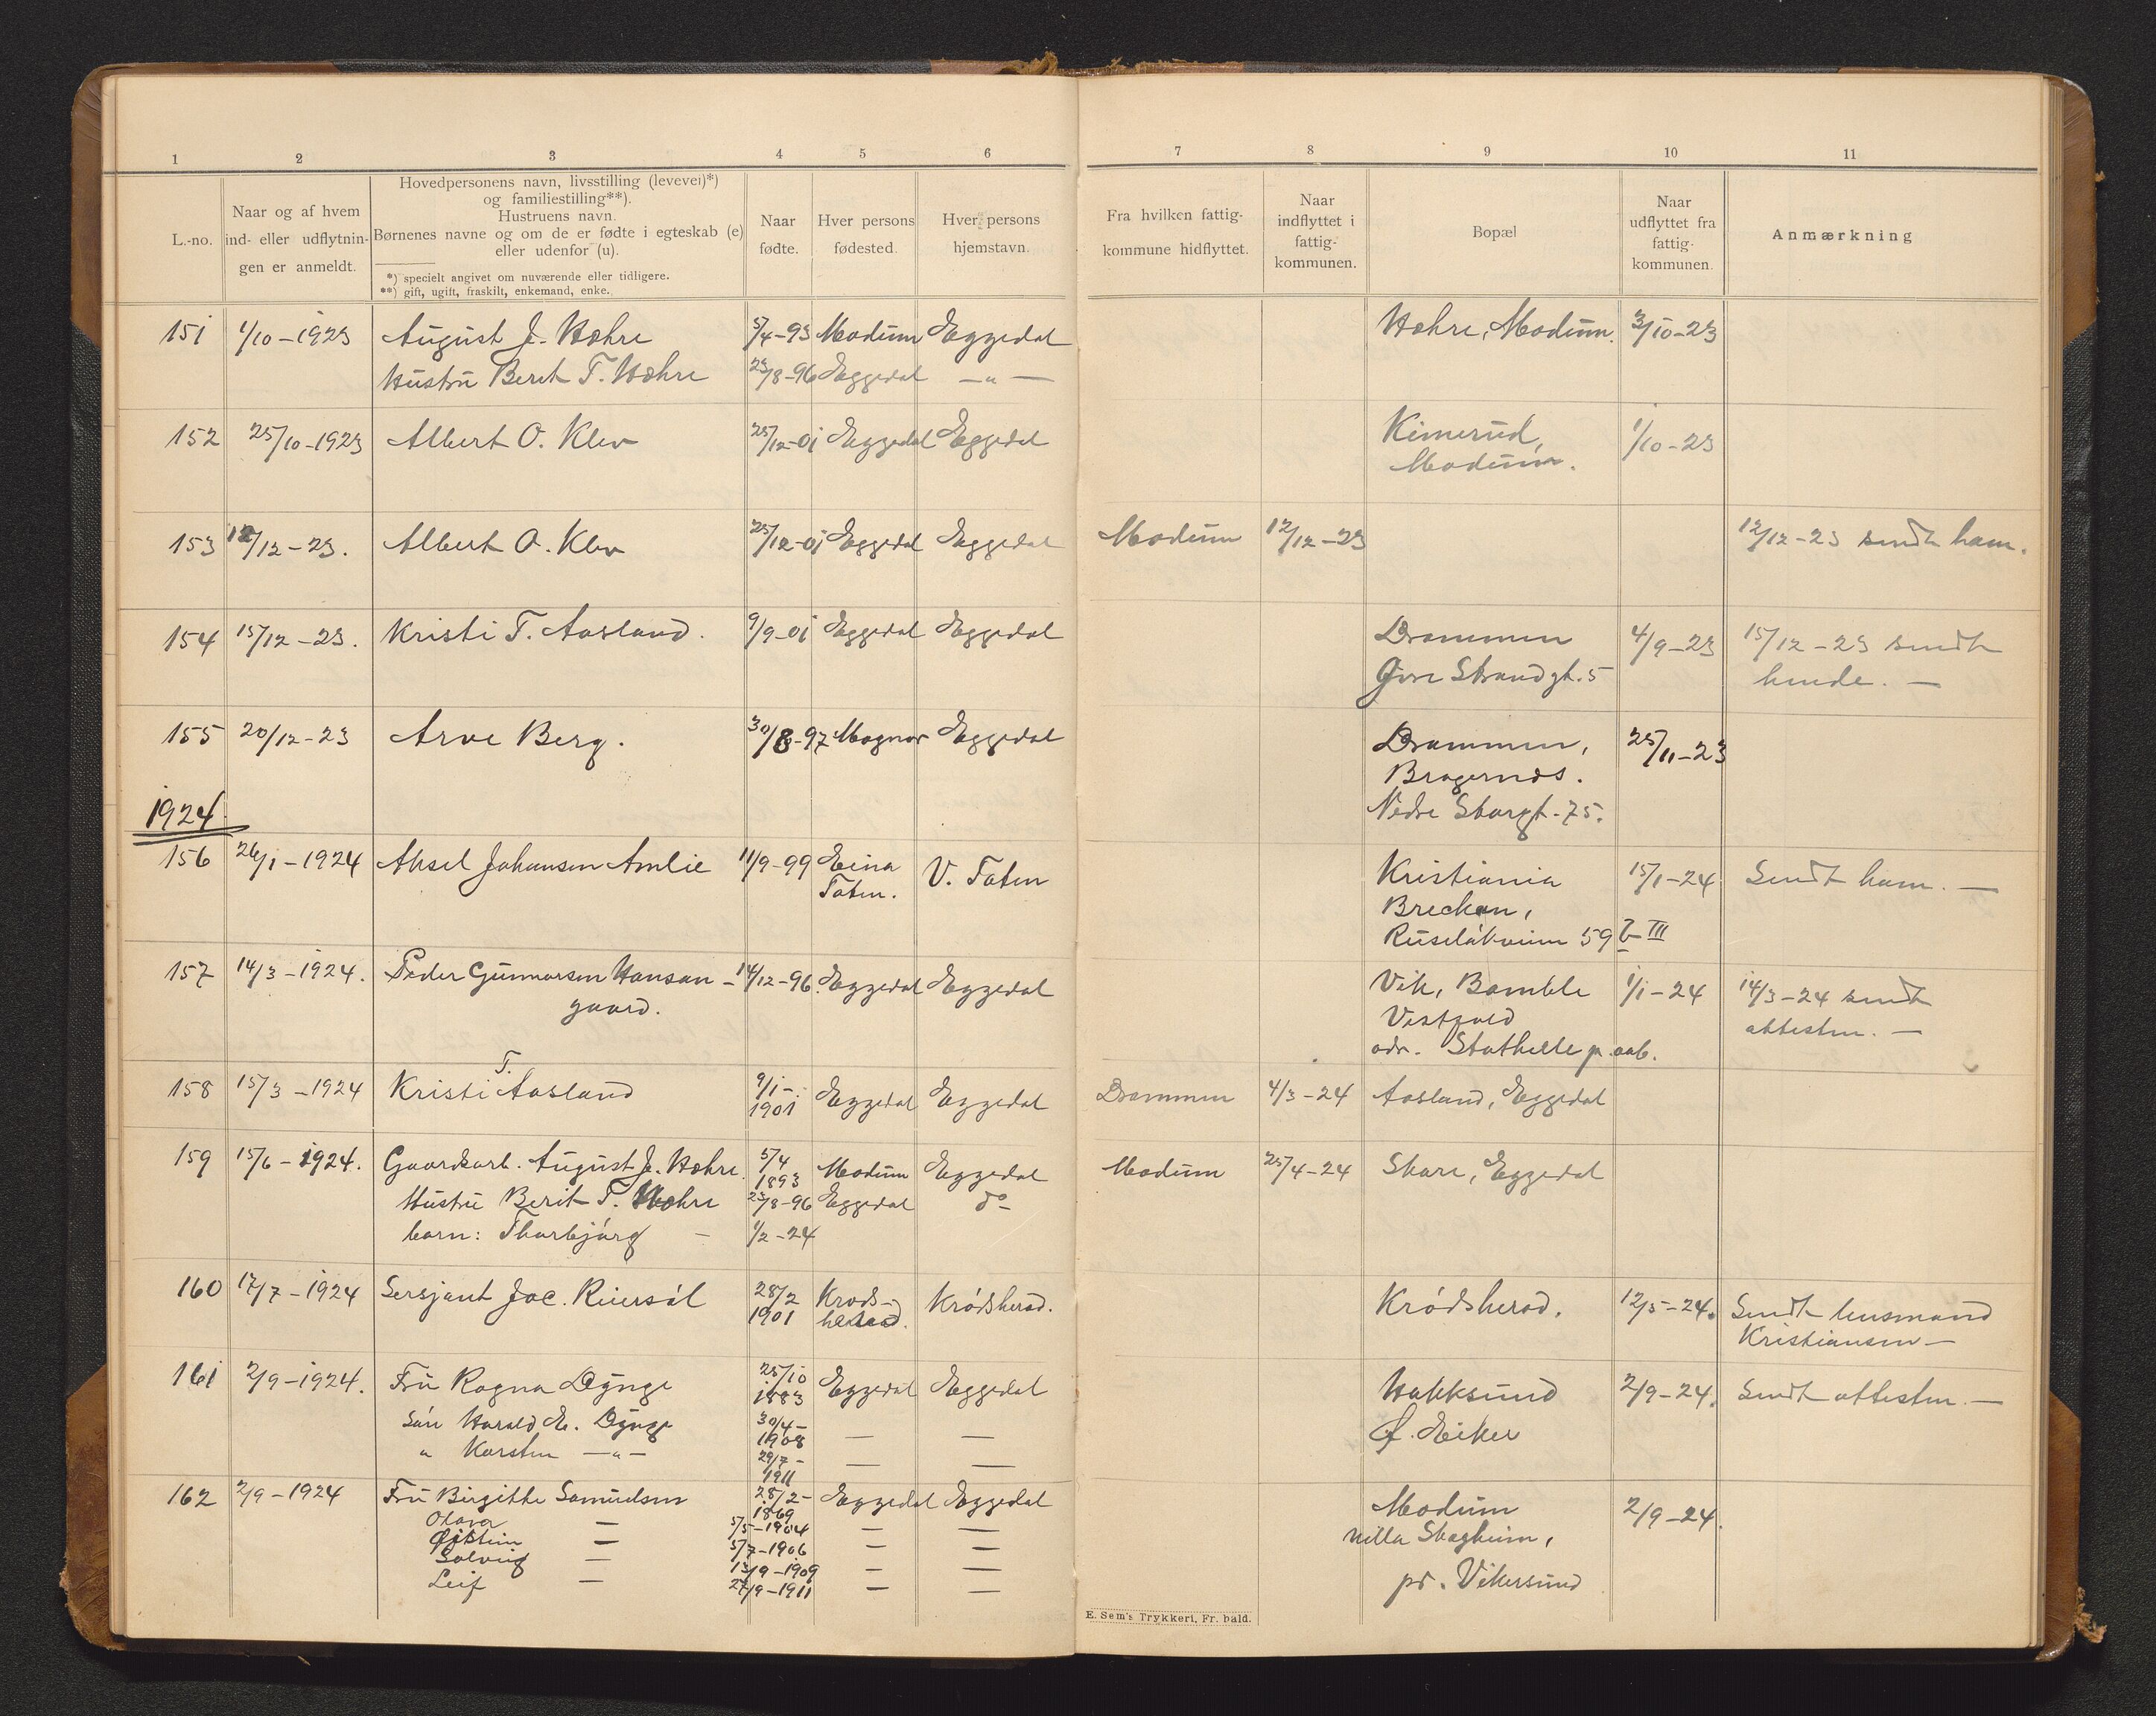 1 2 3 4 5 6 7 8 9 10 11
L.-no.
Naar og af hvem
ind- eller udflytnin-
gen er anmeldt.
Hovedpersonens navn, livsstilling (levevei)*)
og familiestilling**).
Hustruens navn.
Børnenes navne og om de er fødte i egteskab (e)
eller udenfor (u).
*) specielt angivet om nuværende eller tidligere.
**) gift, ugift, fraskilt, enkemand, enke.
Naar
fødte.
Hver persons
fødested.
Hver persons
hjemstavn.
Fra hvilken fattig-
kommune hidflyttet.
Naar
indflyttet i
fattig-
kommunen.
Bopæl
Naar
udflyttet fra
fattig-
kommunen.
Anmærkning
151 1/10-1923 August J. Hæhre 5/4-93 Modum Eggedal Hæhre, Modum. 3/10-23
Hustru Berit T. Hæhre 23/8-96 Eggedal —„—
152 25/10-1923 Albert O. Klev 25/12-01 Eggedal Eggedal Kimerud, 1/10-23
Modum.
153 12/12-23. Albert O. Klev 25/12-01 Eggedal Eggedal Modum 12/12-23 12/12-23 sendt ham.
154 15/12-23. Kristi T. Aasland. 9/9-01 Eggedal Eggedal Drammen 4/9-23 15/12-23 sendt
Øvre Strandgt. 5 hende. —
155 20/12-23 Arve Berg. 30/8-97 Magnor Eggedal Drammen, 25/11-23
Bragernæs.
Nedre Storgt. 75.
1924
156 26/1-1924 Aksel Johansen Amlie 11/9-99 Eina V. Toten Kristiania 15/1-24 Sendt ham. —
Toten. Breckan,
Ruseløkveien 59 b III
157 14/3-1924. Peder Gunnarsen Hansan- 14/12-96. Eggedal Eggedal Vik, Bamble 1/1-24 14/3-24 sendt
gaard. Vestfold attesten. —
adr. Stathelle p. aab.
158 15/3-1924 Kristi T. Aasland 9/1- 1901 Eggedal Eggedal Drammen 4/3-24 Aasland, Eggedal
159 15/6-1924. Gaardsarb. August J. Hæhre. 5/4 1893 Modum Eggedal Modum 25/4-24 Skare, Eggedal
Hustru Berit T. Hæhre 23/8-96 Eggedal do-
barn: Thorbjørg — 1/2-24
160 17/7-1924 Sersjant Jac. Reiersøl 28/2 1901 Krøds- Krødsherad. Krødsherad. 12/5-24. Sendt lensmand
herad. Kristiansen —
161 2/9-1924. Fru Ragna Dynge 25/10 1883 Eggedal Eggedal Hokksund 2/9-24. Sendt attesten. —
Søn Harald E. Dynge 30/4- 1908 — — Ø. Eiker
„ Karsten —„— 29/7- 1911 — —
162 2/9-1924 Fru Birgitte Samuelsen 28/2- 1869 Eggedal Eggedal Modum 2/9-24.
Olava — 5/5-1904 — — villa Skogheim,
Øistein — 5/7-1906 — — pr. Vikersund
Solveig — 13/9-1909 — —
Leif — 27/9-1911 — —
E. Sem's Trykkeri, Fr. hald.